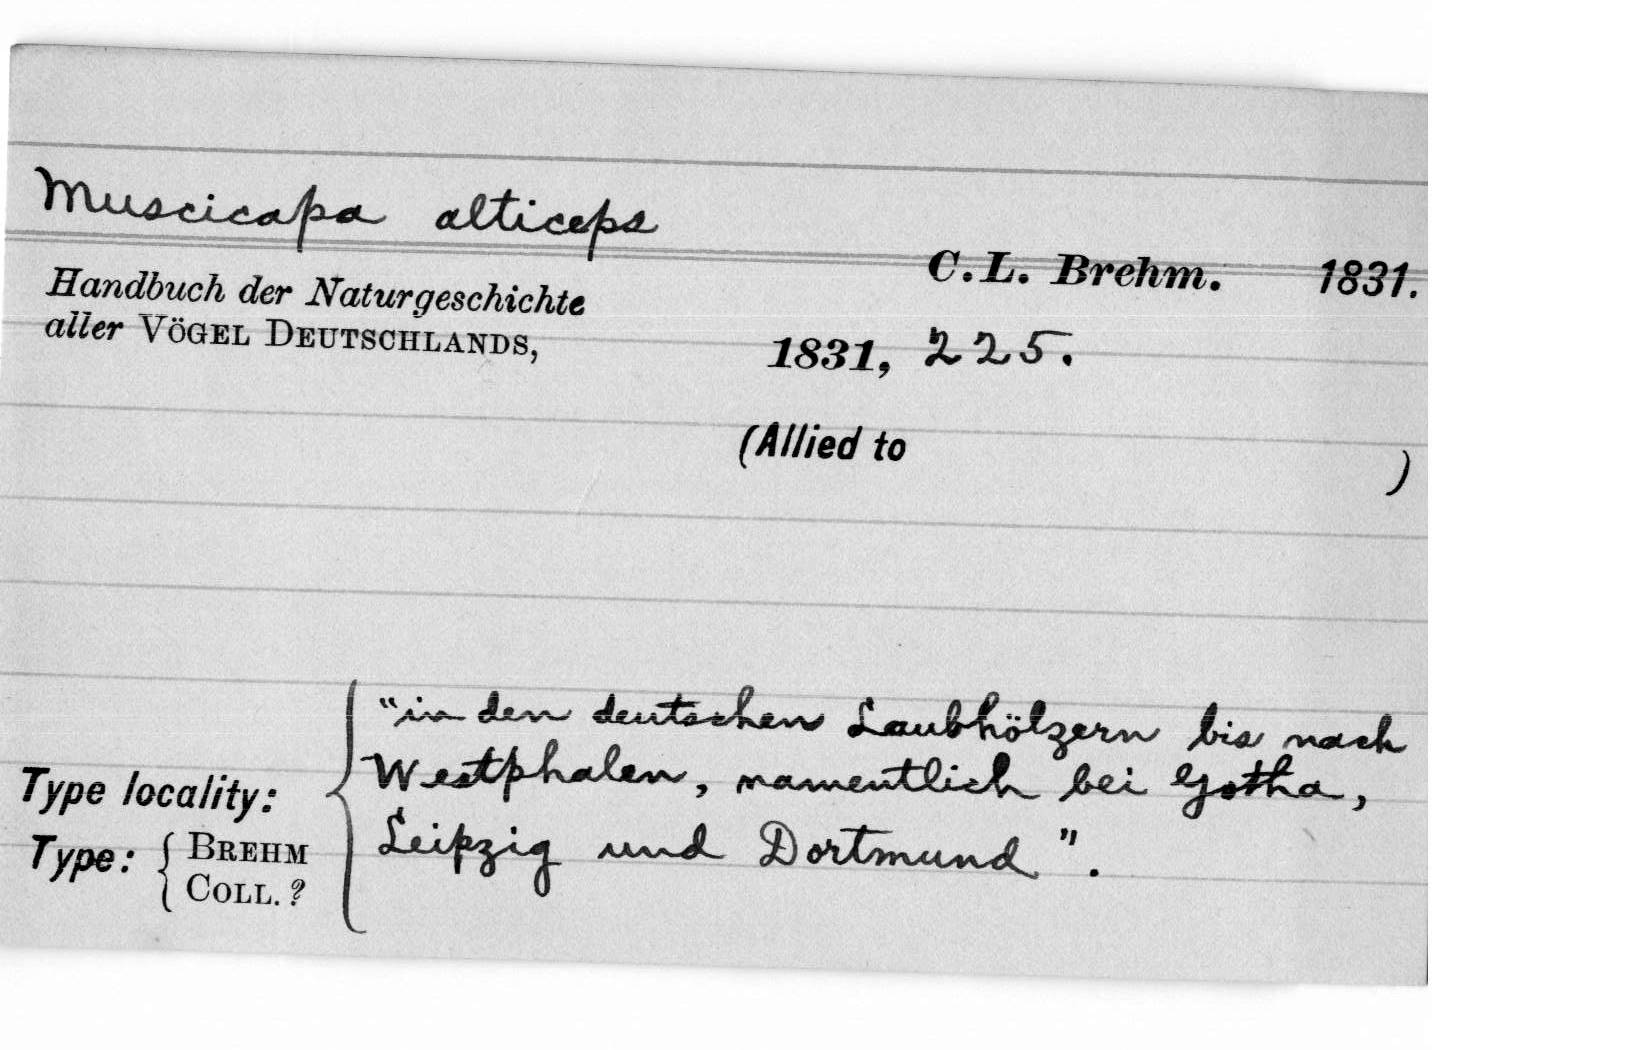 Muscicapa alticeps
C.L. Brehm. 1831.
Handbuch der Naturgeschichte
aller VÖGEL DEUTSCHLANDS,
1831, 225.
(Allied to )
"in den deutschen Laubhölzern bis nach
Westphalen, namentlich bei Gotha,
Leipzig und Dortmund".
Type locality:
Type: { BREHM
COLL. ?